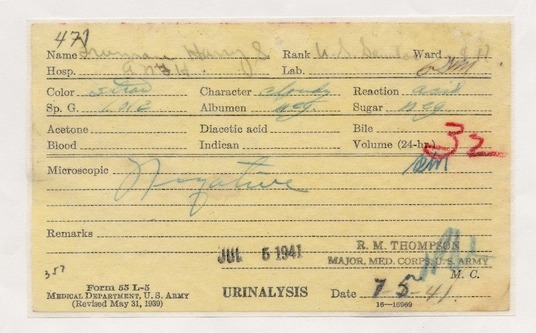 471
Name Truman Harry S Rank U.S. Senator Ward
Hosp. Lab.
Color straw Character cloudy Reaction acid
Sp. G. Albumen neg. Sugar neg
Acetone Diacetic acid Bile
Blood Indican Volume (24-hr.) 32
Microscopic Negative
Remarks
JUL 5 1941
R. M. THOMPSON
MAJOR, MED. CORPS, U.S. ARMY
M. C.
357
Form 55 L-5
MEDICAL DEPARTMENT, U. S. ARMY
(Revised May 31, 1939)
URINALYSIS
Date 7-5-41.
16—16969